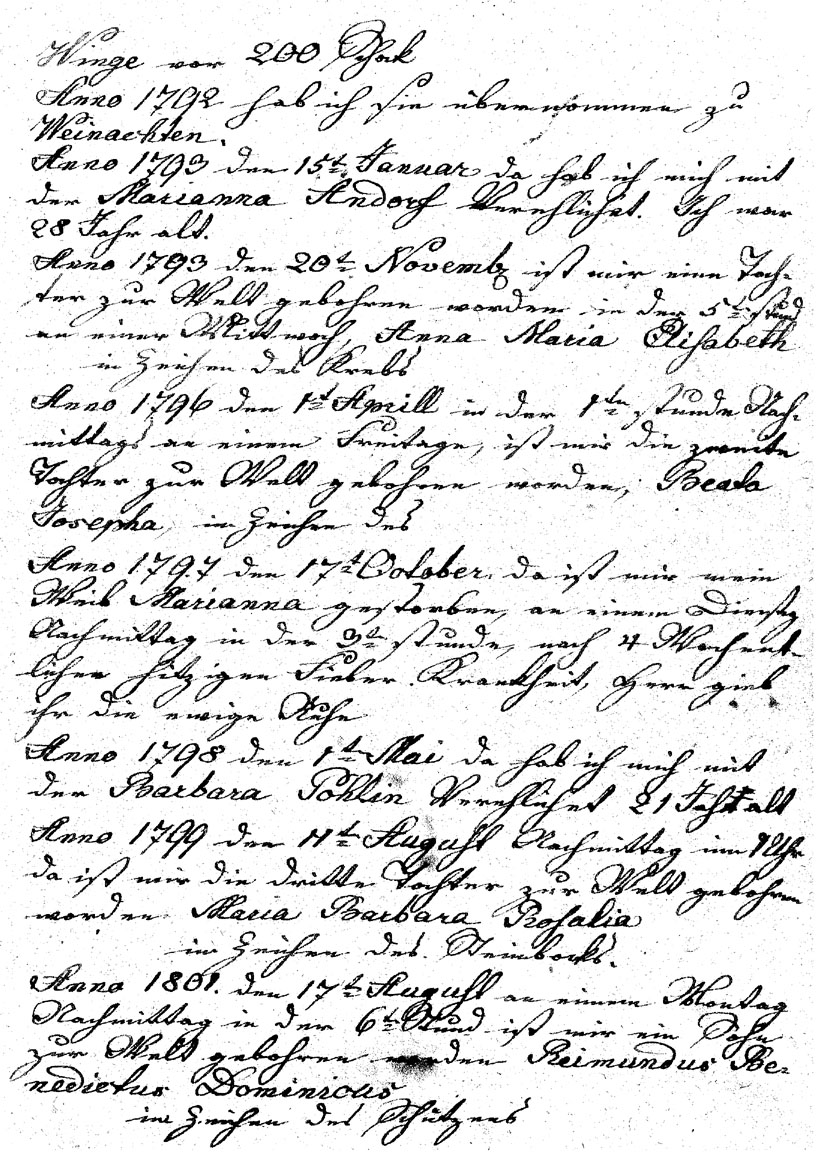 Winge vor 200 Schok
Anno 1792 hab ich sie übernommen zu
Weinachten.
Anno 1793 den 15t. Januar da hab ich mich mit
der Marianna Andorf Verehlichet. Ich war
28 Jahr alt.
Anno 1793 den 20t Novembr ist mir eine Toch-
ter zur Welt gebohren worden in der 5t Stund
an einer Mittwoch, Anna Maria Elisabeth
in Zeichen des Krebs
Anno 1796 den 1t Aprill in der 1ten stunde Nach-
mittags an einem Freitage, ist mir die zweite
Tochter zur Welt gebohren worden, Beata
Josepha, in Zeichen des
Anno 1797 den 17t October. da ist mir mein
Weib Marianna gestorben, an einem Dienstg
Nachmittag in der 3t stunde, nach 4 Wochent-
lichen hitzigen Fieber Krankheit, Herr gieb
ihr die ewige Ruhe
Anno 1798 den 1t Mai da hab ich mich mit
der Barbara Pohlin Verehlichet 21 Jahr alt
Anno 1799 den 11t August Nachmittag um 1 Uhr
da ist mir die dritte Tochter zur Welt gebohren
worden Maria Barbara Rosalia
in Zeichen des Steinbocks.
Anno 1801. den 17t August an einem Montag
Nachmittag in der 6t Stund ist mir ein Sohn
zur Welt gebohren worden Reimundus Be-
nedictus Dominicus
in Zeichen des Schützens